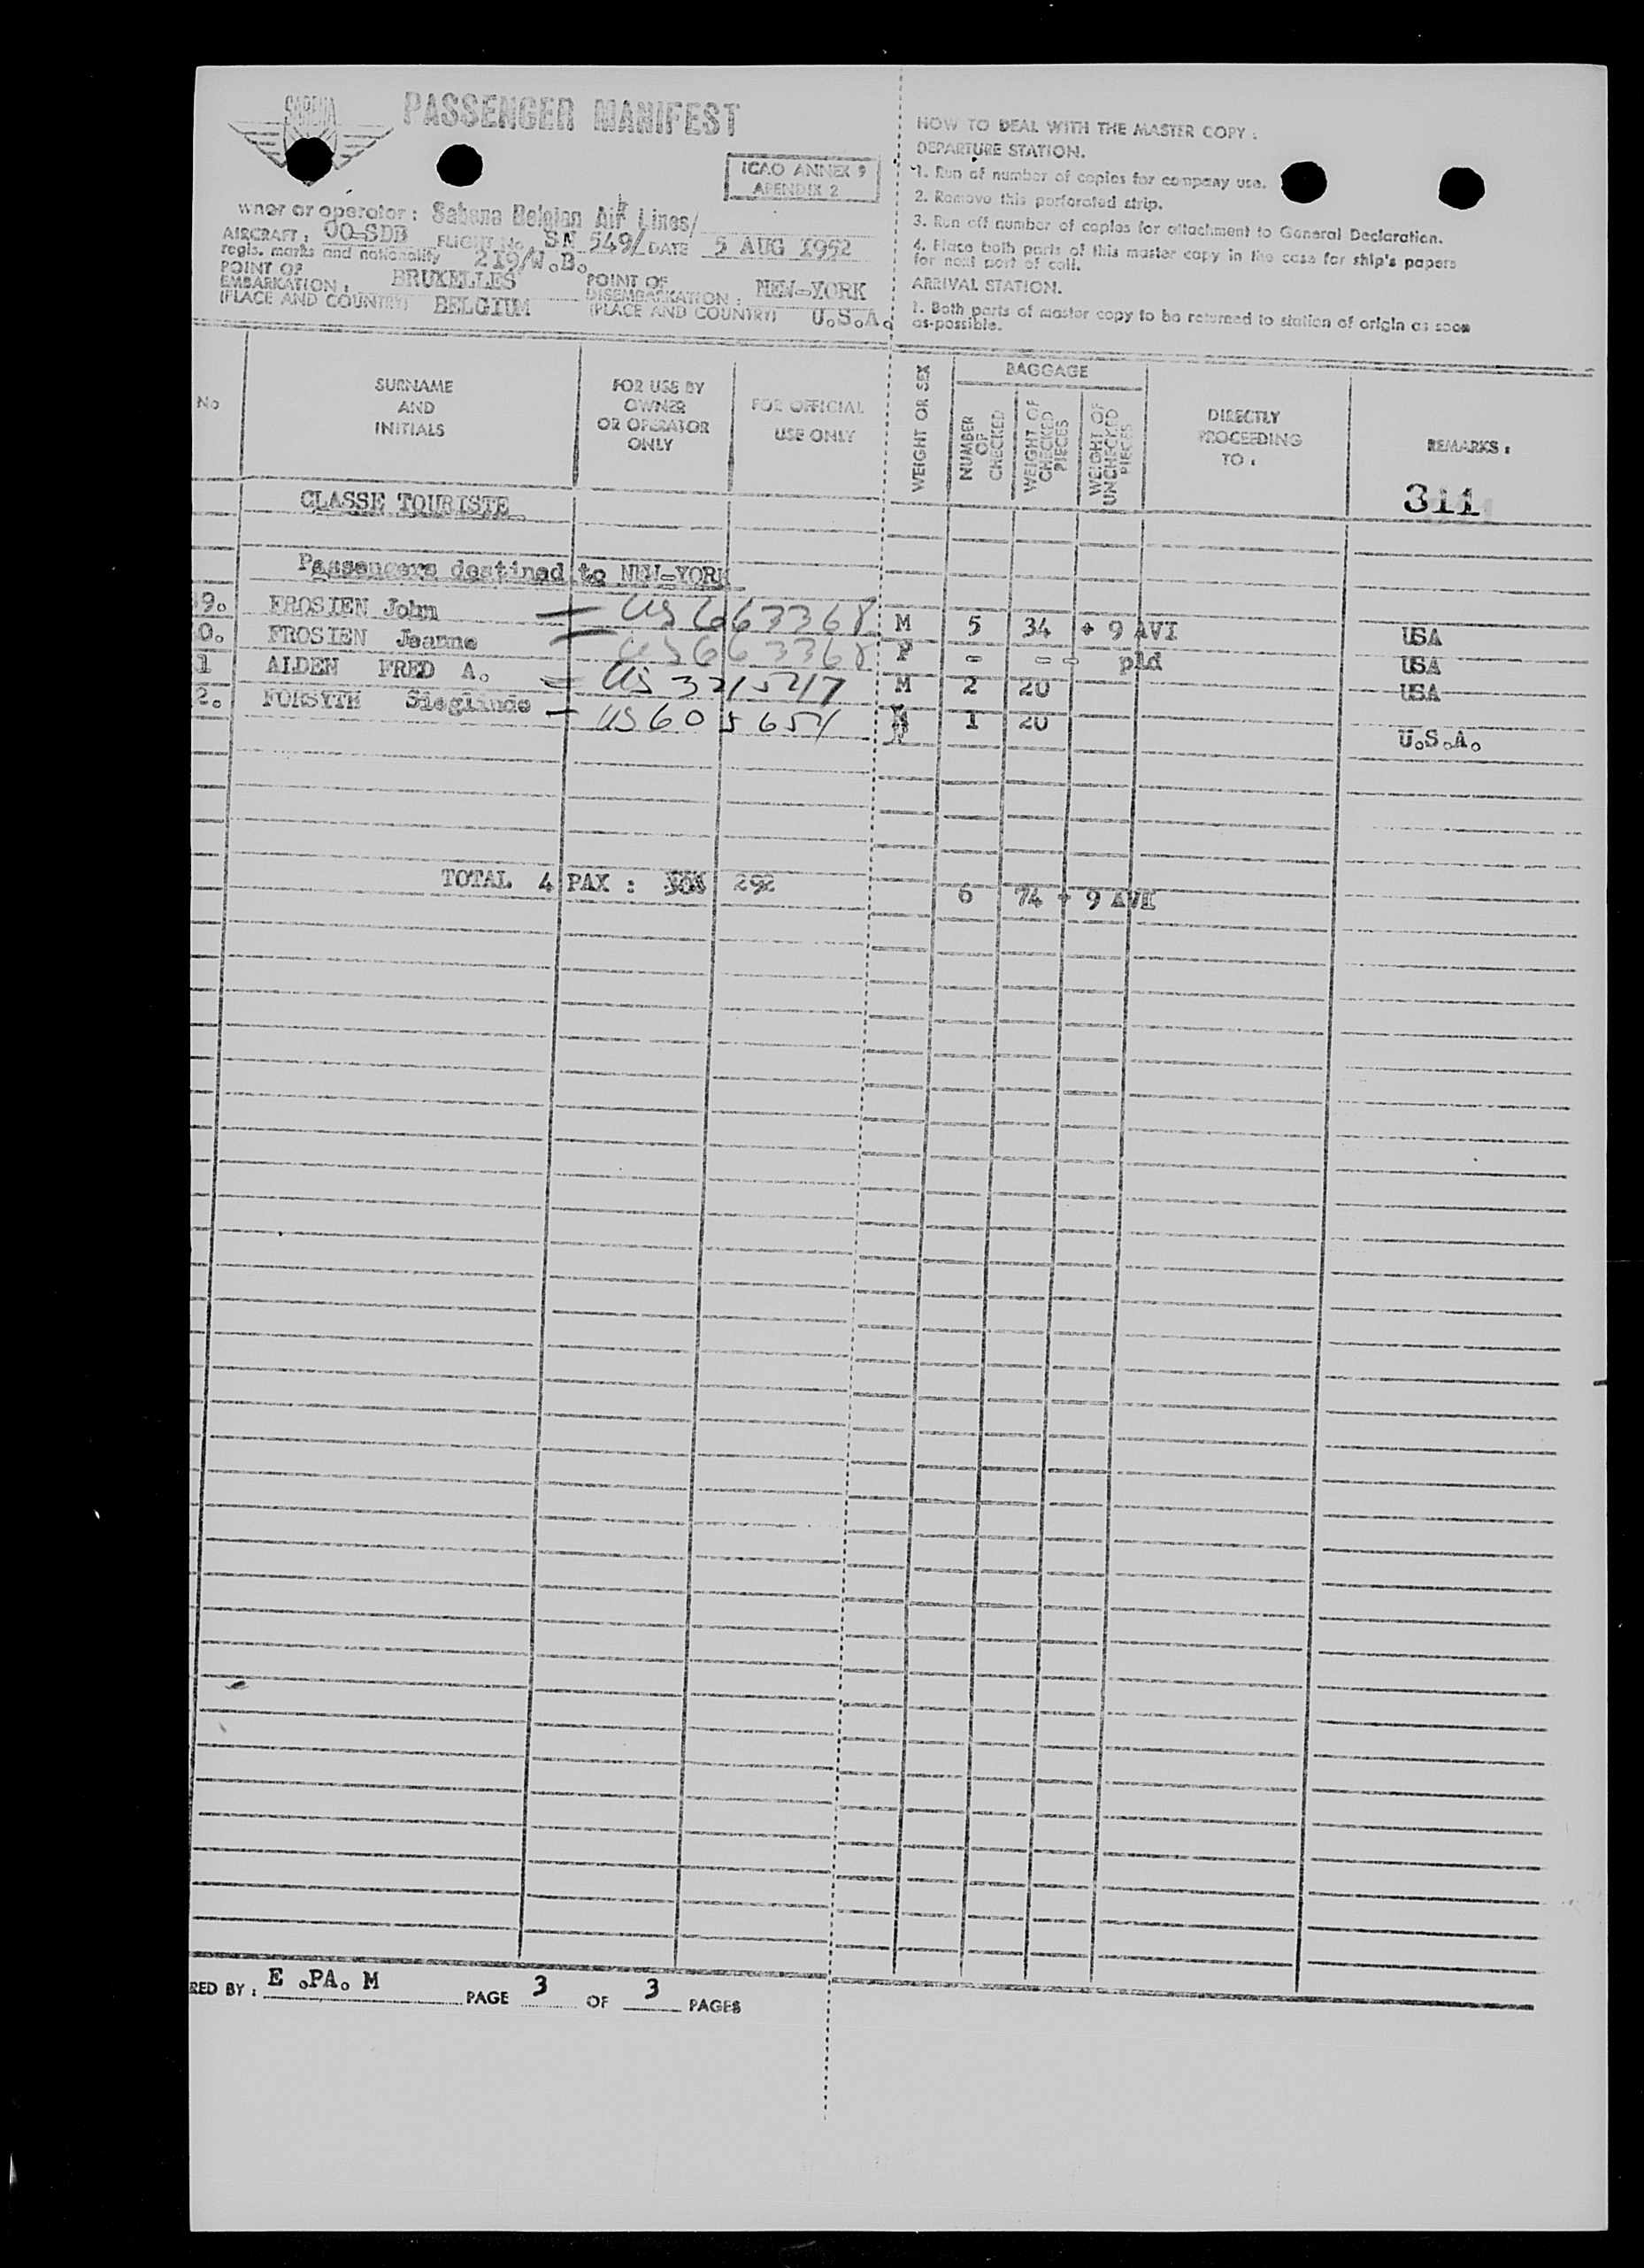 SABENA
PASSENGER MANIFEST
ICAO ANNEX 9
APENDIX 2
wner or operator : Sabena Belgian Air Lines/
AIRCRAFT : OO-SDB FLIGHT No SN 549/ DATE 5 AUG 1952
regis. marks and nationality 219/W.B.
POINT OF EMBARKATION : BRUXELLES POINT OF DISEMBARKATION : NEW-YORK
(PLACE AND COUNTRY) BELGIUM (PLACE AND COUNTRY) U.S.A.
HOW TO DEAL WITH THE MASTER COPY :
DEPARTURE STATION.
1. Run of number of copies for company use.
2. Remove this perforated strip.
3. Run off number of copies for attachment to General Declaration.
4. Place both parts of this master copy in the case for ship's papers
for next port of call.
ARRIVAL STATION.
1. Both parts of master copy to be returned to station of origin as soon
as possible.
No
SURNAME
AND
INITIALS
FOR USE BY
OWNER
OR OPERATOR
ONLY
FOR OFFICIAL
USE ONLY
WEIGHT OR SEX
BAGGAGE
NUMBER
OF
CHECKED
WEIGHT OF
CHECKED
PIECES
WEIGHT OF
UNCHECKED
PIECES
DIRECTLY
PROCEEDING
TO :
REMARKS :
311
CLASSE TOURISTE
Passengers destined to NEW-YORK
9. FROSIEN John = US 663368 M 5 34 + 9 AVI USA
0. FROSIEN Jeanne US 663368 F - - - pld USA
1 ALDEN FRED A. = M 2 20 USA
2. FORSYTH Sieglinde - US 605654 F 1 20 U.S.A.
TOTAL 4 PAX : 292 6 74 + 9 AVI
RED BY : E .PA. M PAGE 3 OF 3 PAGES